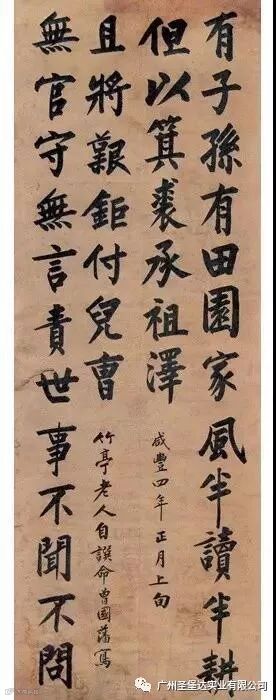 有子孫有田園家風半讀半耕
但以箕裘承祖澤
咸豐四年正月上旬
無官守無言責世事不聞不問
且將艱鉅付兒曹
竹亭老人自譔命曾國藩寫
广州圣堡达实业有限公司